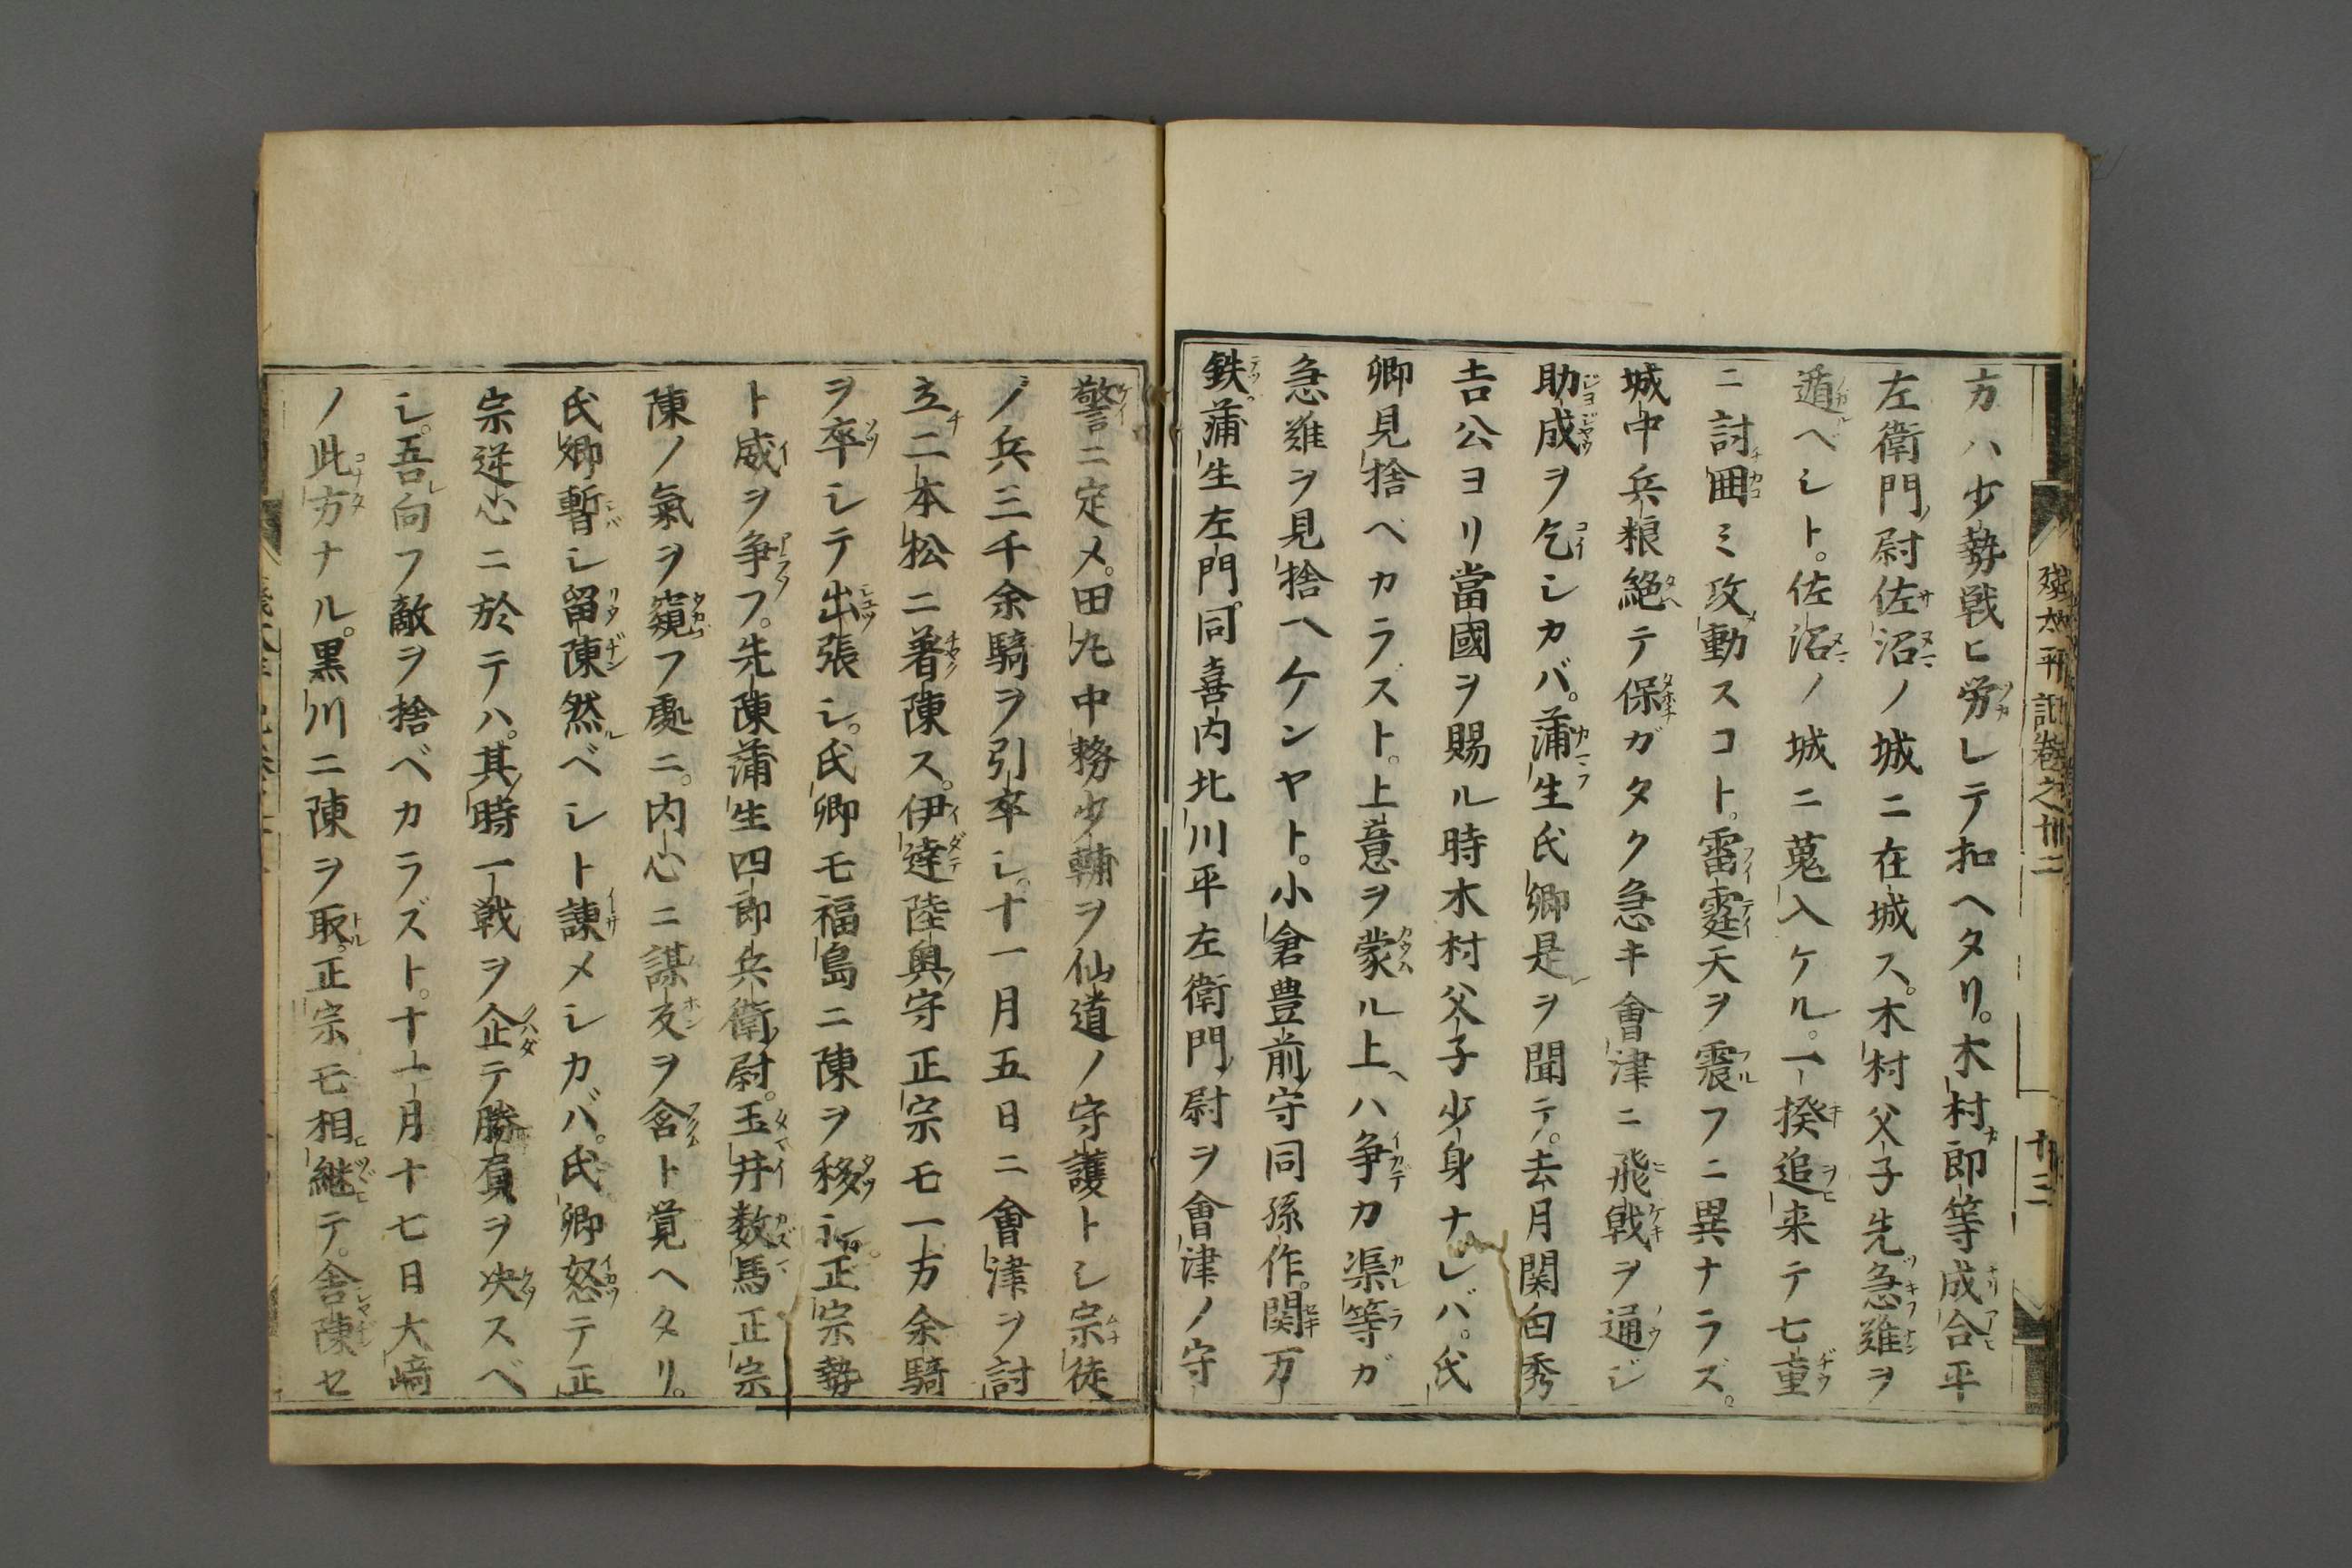 方ハ少勢戦ヒ労レテ扣ヘタリ。木村郎等成合平
左衛門尉佐沼ノ城ニ在城ス。木村父子先急難ヲ
遁ベシト。佐沼ノ城ニ蒐入ケル。一揆追来テ七重
ニ討囲ミ攻動スコト。雷霆天ヲ震フニ異ナラズ。
城中兵粮絶テ保ガタク急キ會津ニ飛戟ヲ通ジ
助成ヲ乞シカバ。蒲生氏郷是ヲ聞テ。去月関白秀
吉公ヨリ當國ヲ賜ル時木村父子少身ナレバ。氏
郷見捨ベカラズト。上意ヲ蒙ル上ハ争カ渠等ガ
急難ヲ見捨ヘケンヤト。小倉豊前守同孫作。関万
鉄。蒲生左門。同喜内北川平左衛門尉ヲ會津ノ守
警ニ定メ。田丸中務少輔ヲ仙道ノ守護トシ宗徒
ノ兵三千余騎ヲ引卒シ。十一月五日ニ會津ヲ討
立二本松ニ著陳ス。伊達陸奥守正宗モ一万余騎
ヲ卒シテ出張シ。氏郷モ福島ニ陳ヲ移シ。正宗勢
ト威ヲ争フ。先陳蒲生四郎兵衛尉。玉井数馬正宗
陳ノ氣ヲ窺フ處ニ。内心ニ謀反ヲ含ト覚ヘタリ。
氏郷暫シ留陳然ベシト諫メシカバ。氏郷怒テ正
宗逆心ニ於テハ。其時一戦ヲ企テ勝負ヲ决スベ
シ。吾向フ敵ヲ捨ベカラズト。十一月十七日大﨑
ノ此方ナル。黒川ニ陳ヲ取。正宗モ相継テ。舎陳セ
續太平記巻之廿二
廿三